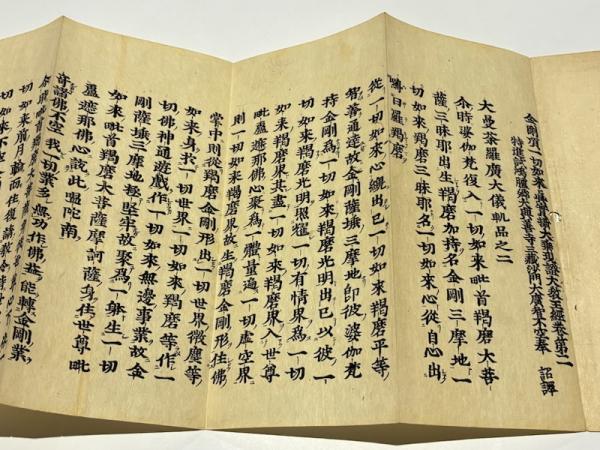 金剛頂一切如來眞實攝大乘現證大教王經卷第二
特進試鴻臚卿大興善寺三藏沙門大廣智不空奉 詔譯
大曼荼羅廣大儀軌品之二
尒時婆伽梵復入一切如來毗首羯磨大菩
薩三昧耶出生羯磨加持名金剛三摩地一
切如來羯磨三昧耶名一切如來心從自心出
嚩日羅羯磨
從一切如來心纔出已一切如來羯磨平等
智善通達故金剛薩埵三摩地即彼婆伽梵
持金剛爲一切如來羯磨光明出已以彼一
切如來羯磨光明照曜一切有情界爲一切
如來羯磨界其盡一切如來羯磨界入世尊
毗盧遮那佛心聚爲一體量遍一切虛空界
則一切如來羯磨界故生羯磨金剛形住佛
掌中則從羯磨金剛形出一切世界微塵等
如來身於一切世界一切如來羯磨等作一
切佛神通遊戲作一切如來無邊事業故金
剛薩埵三摩地極堅牢故聚爲一躰生一切
如來毗首羯磨大菩薩摩訶薩身住世尊毗
盧遮那佛心說此嗢陀南
奇諸佛不空 我一切業多 無功作佛益 能轉金剛業
毗首羯磨大菩薩
切如來前月輪而住復請教令時
一切如來不空